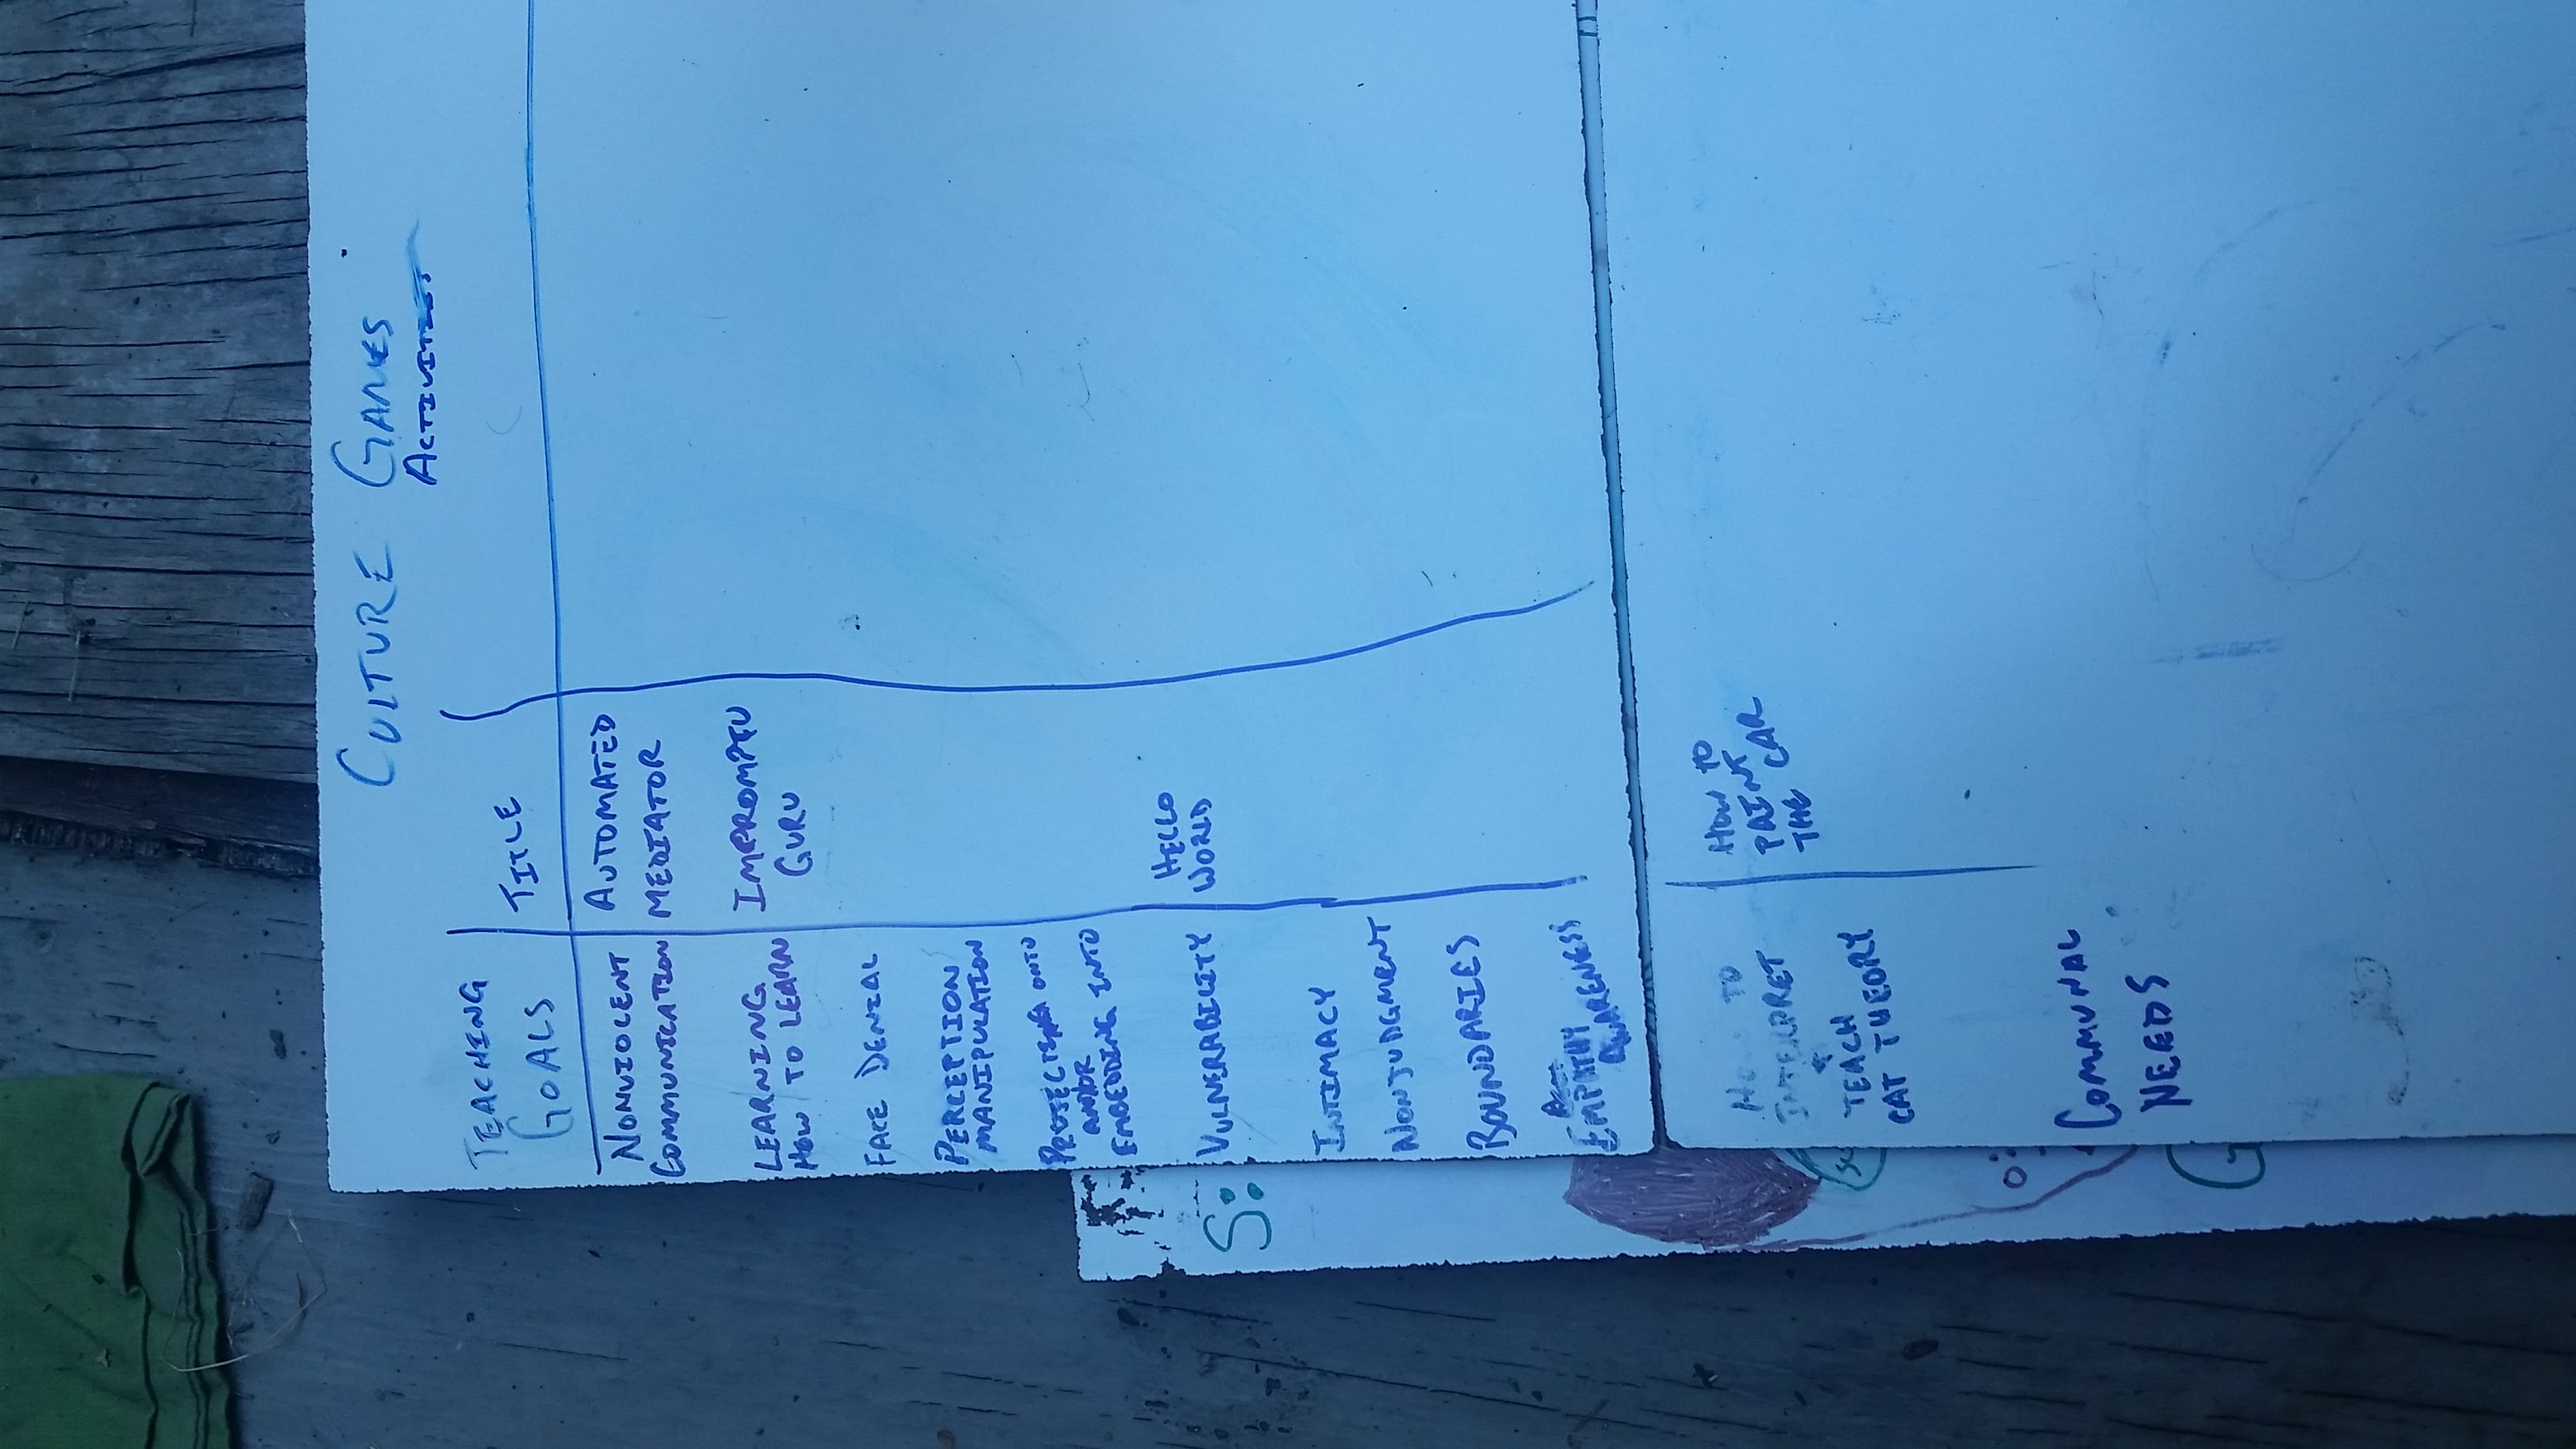 CULTURE GAMES
ACTIVITIES
TEACHING
GOALS
TITLE
NONVIOLENT
COMMUNICATION
AUTOMATED
MEDIATOR
LEARNING
HOW TO LEARN
IMPROMPTU
GURU
FACE DENIAL
PERCEPTION
MANIPULATION
PROJECTING ONTO
AND/OR
EMBEDDING INTO
VULNERABILITY
HELLO
WORLD
INTIMACY
NONJUDGMENT
BOUNDARIES
EMPATHY
AWARENESS
HOW TO
INTERPRET
+
TEACH
CAT THEORY
HOW TO
PAINT
THE CAR
COMMUNAL
NEEDS
S:
G